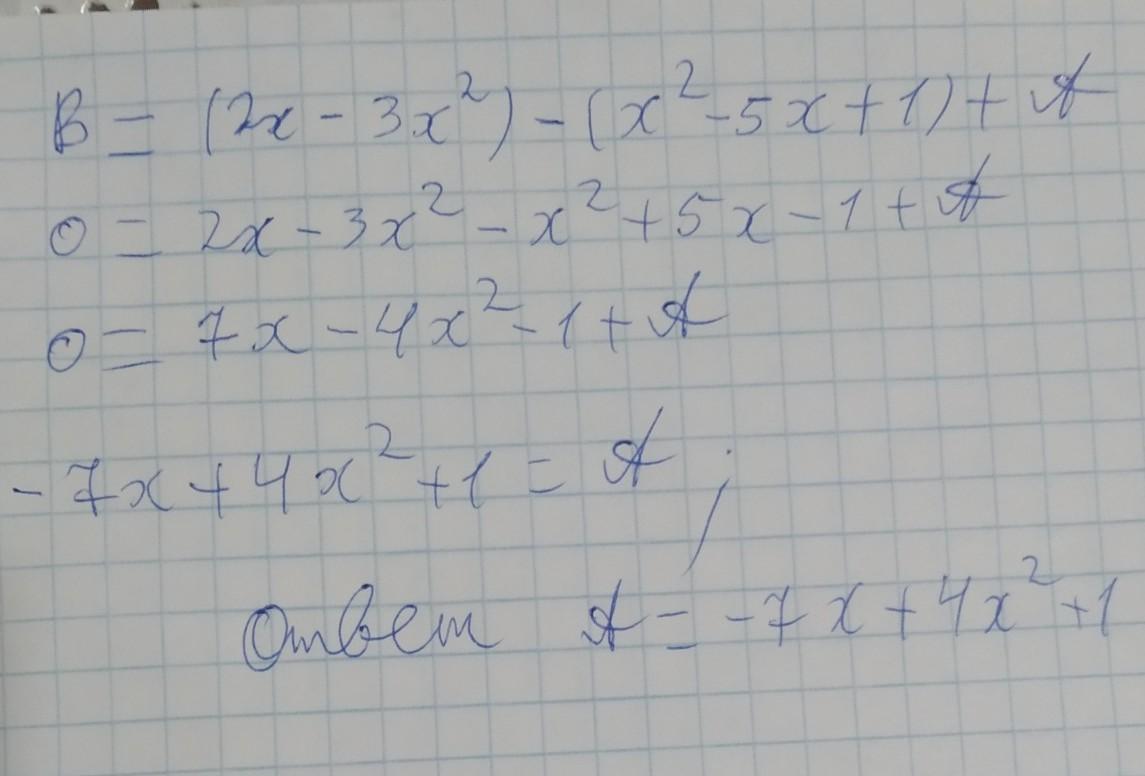 B = (2x - 3x²) - (x² - 5x + 1) + A
0 = 2x - 3x² - x² + 5x - 1 + A
0 = 7x - 4x² - 1 + A
- 7x + 4x² + 1 = A ;
Ответ A = - 7x + 4x² + 1